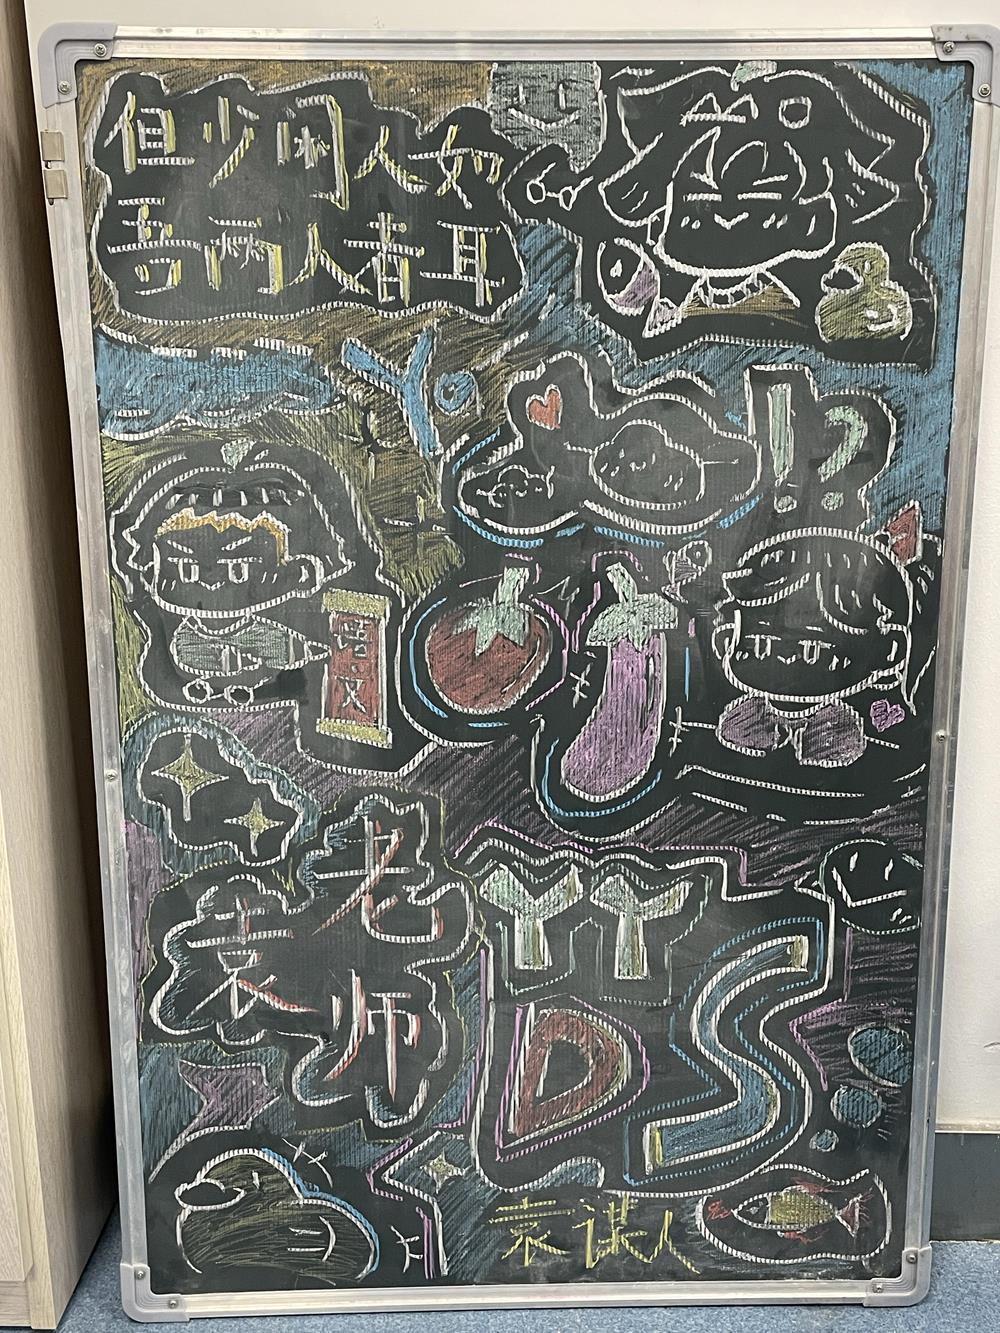 但少闲人如
吾两人者耳
Yo
!?
语文
袁老师
YYDS
袁谋人